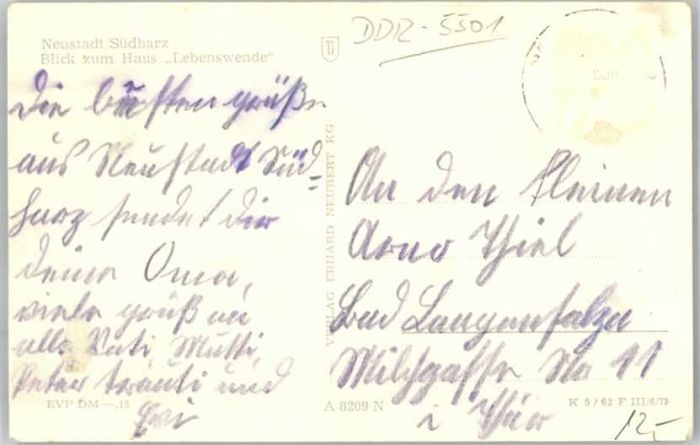 Neustadt/Südharz
Blick zum Haus „Lebenswende"
DDR-5501
die besten grüße
aus Neustadt Süd=
harz sendet dir
deine Oma,
viele grüß an
alle Vati Mutti,
Peter trauti und
Evi
VERLAG ERHARD NEUBERT KG
An den kleinen
Arno Thiel
Bad Langensalza
Milchgasse No 11
i Thür
EVP DM —,15
A 8209 N
K 5/62 F III/6/79
12,-